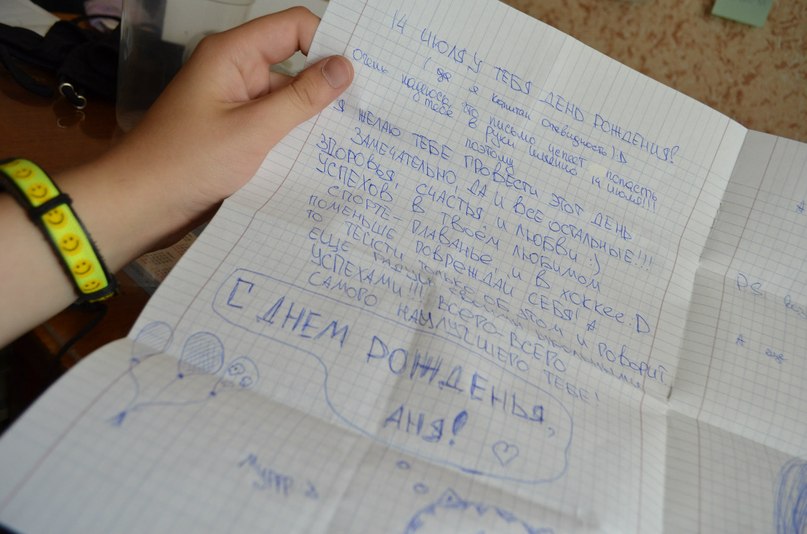 14 ИЮЛЯ У ТЕБЯ ДЕНЬ РОЖДЕНИЯ!
( да я капитан очевидность) :D
очень надеюсь, что письмо успеет попасть
тебе в руки именно 14 июля!!!
поэтому
Я ЖЕЛАЮ ТЕБЕ ПРОВЕСТИ ЭТОТ ДЕНЬ
ЗАМЕЧАТЕЛЬНО, ДА И ВСЕ ОСТАЛЬНЫЕ!!!
ЗДОРОВЬЯ, СЧАСТЬЯ И ЛЮБВИ :)
УСПЕХОВ В ТВОЁМ ЛЮБИМОМ
СПОРТЕ - ПЛАВАНЬЕ И В ХОККЕЕ :D
ПОМЕНЬШЕ ПОВРЕЖДАЙ СЕБЯ! А
ТО ТЕЙСТИ ТОЛЬКО ОБ ЭТОМ И ГОВОРИТ
ЕЩЕ
УСПЕХАМИ!!! ВСЕГО-ВСЕГО
САМОГО НАИЛУЧШЕГО ТЕБЕ!
С ДНЕМ РОЖДЕНЬЯ,
АНЯ!